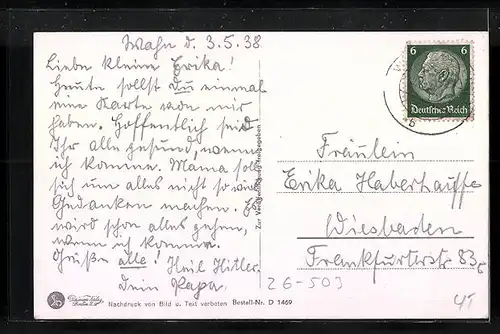 Wahn d. 3.5.38
Liebe kleine Erika!
Heute sollst du einmal
eine Karte von mir
haben. Hoffentlich seid
Ihr alle gesund, wenn
ich komme. Mama soll
sich um alles nicht so viele
Gedanken machen. Es
wird schon alles gehen,
wenn ich komme.
Grüße alle! Heil Hitler.
Dein Papa.
6 6
Deutsches Reich
Fräulein
Erika Haberhauffe
Wiesbaden
Frankfurterstr 83
26-503
Nachdruck von Bild u. Text verboten Bestell-Nr. D 1469